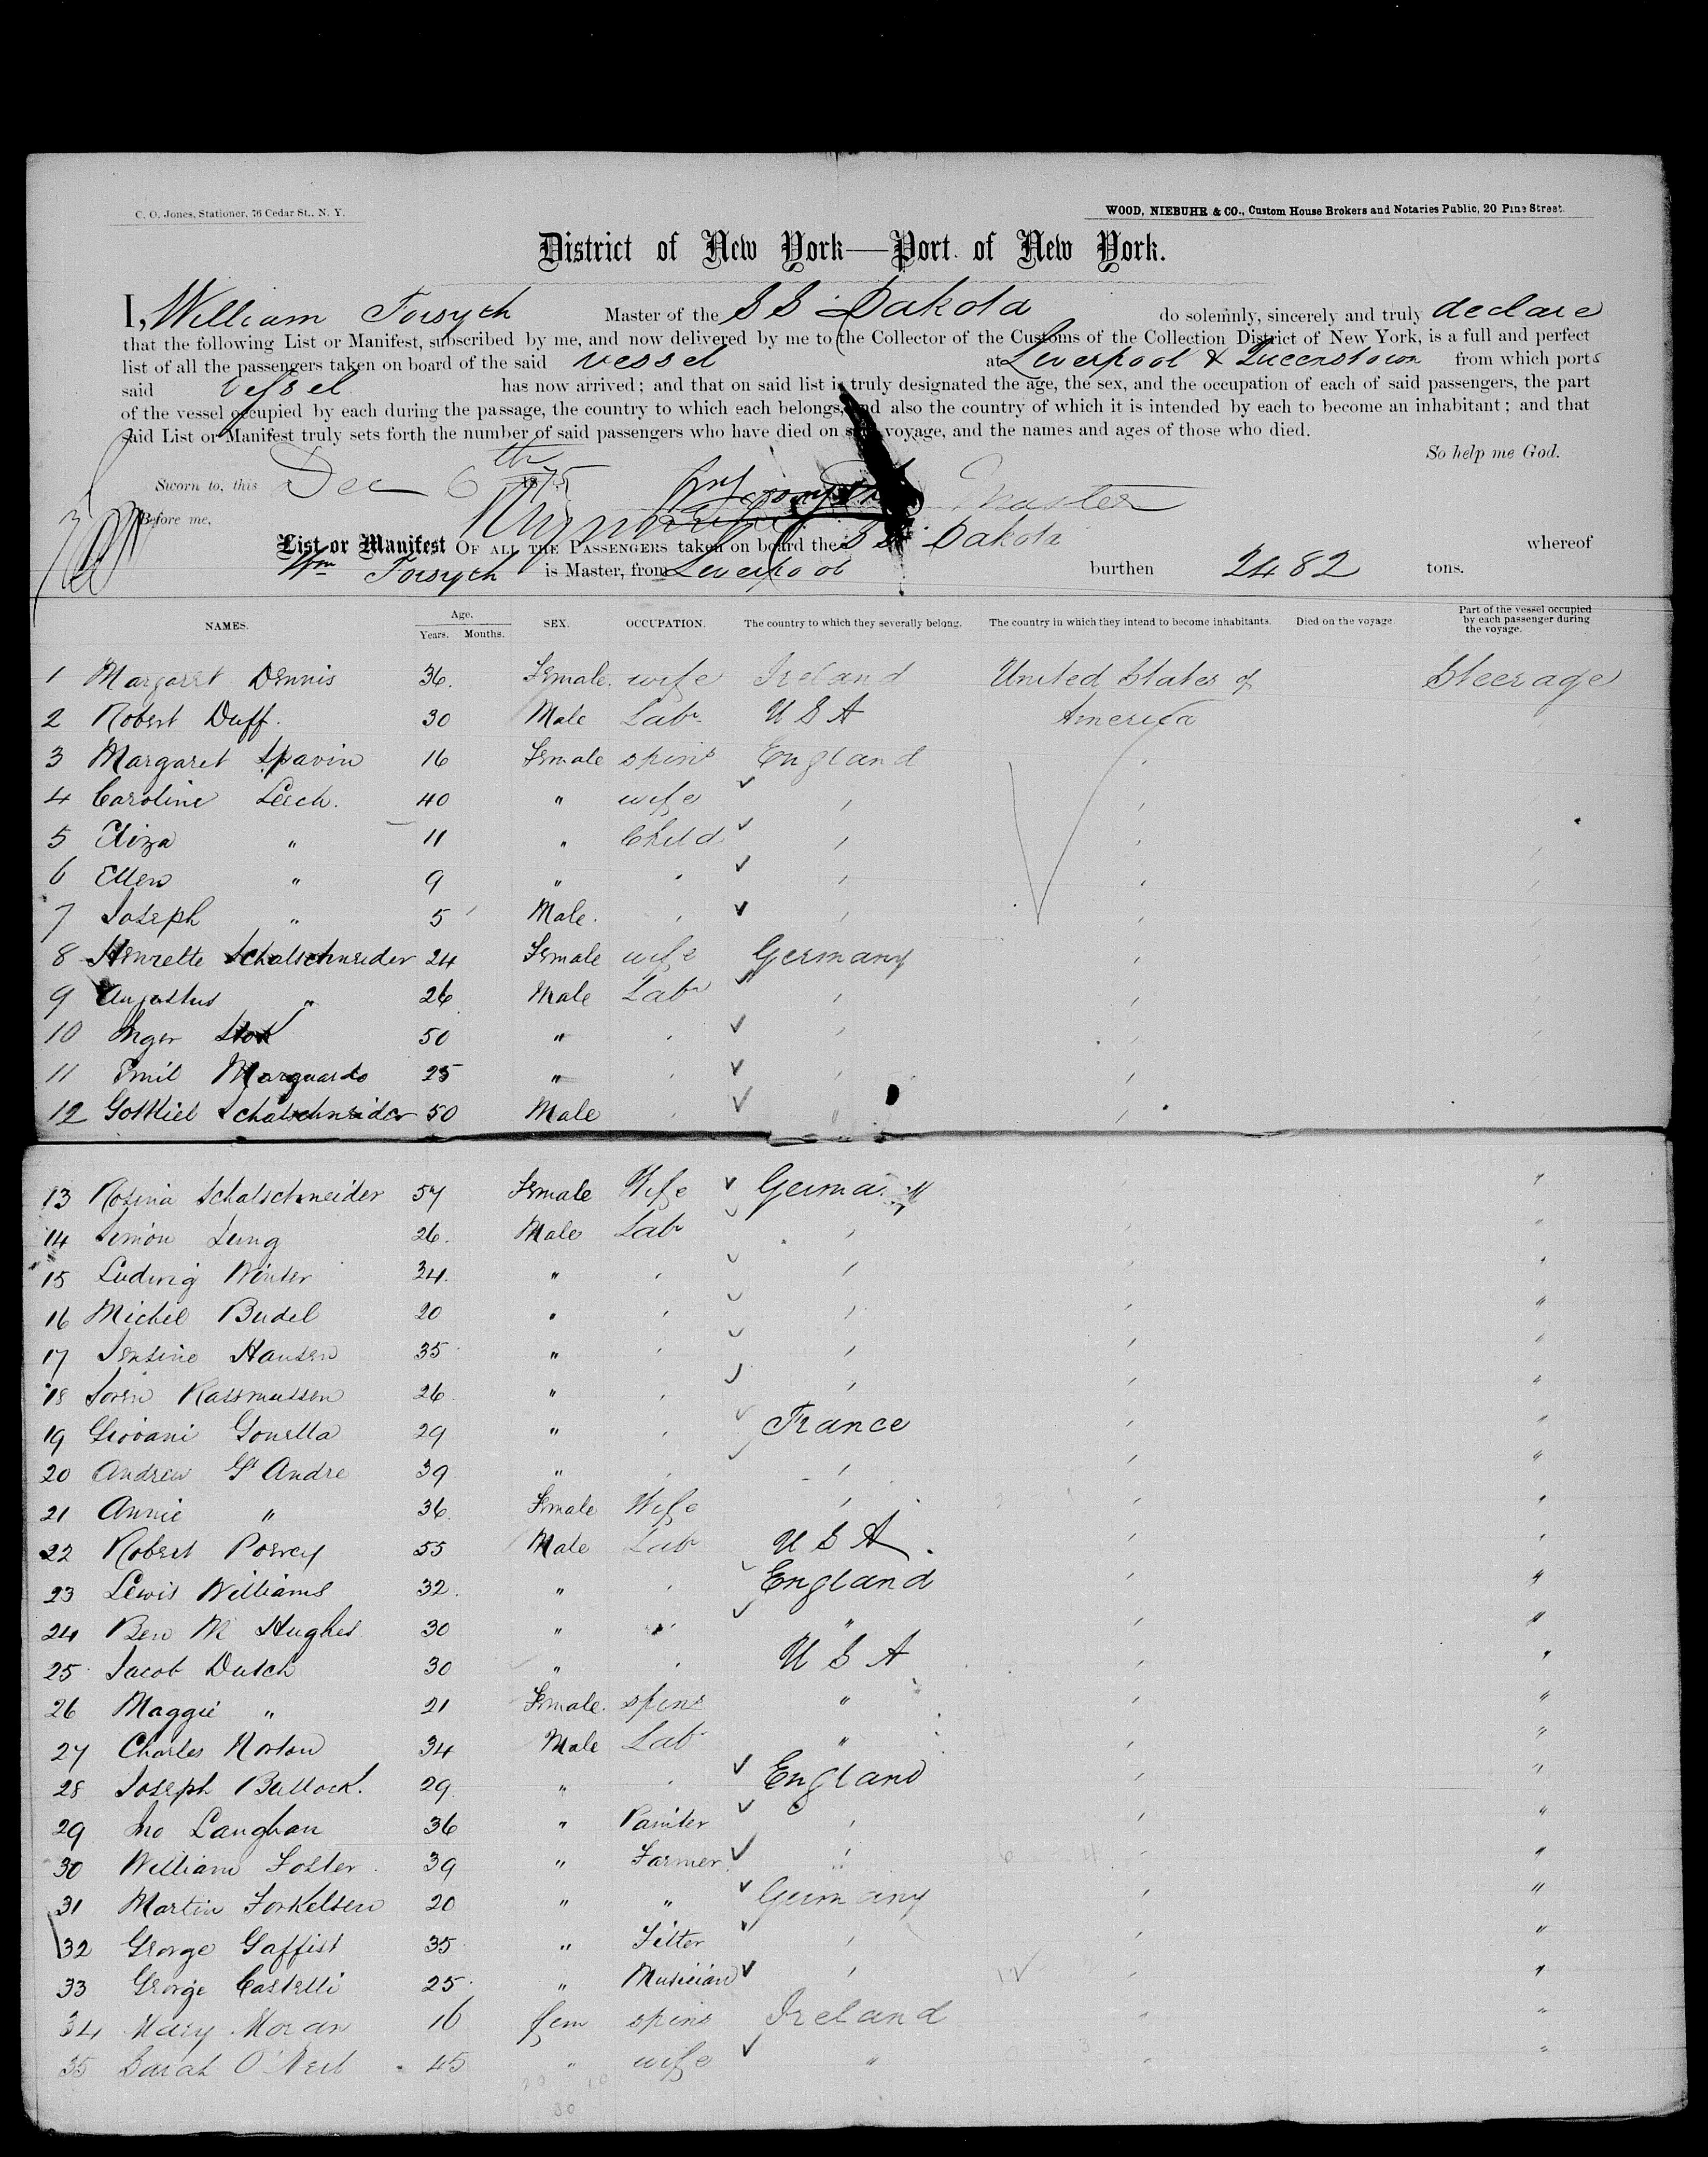 C. O. Jones, Stationer, 76 Cedar St., N. Y.
WOOD, NIEBUHR & CO., Custom House Brokers and Notaries Public, 20 Pine Street.
District of New York—Port of New York.
I, William Forsyth Master of the S S Dakota do solemnly, sincerely and truly declare
that the following List or Manifest, subscribed by me, and now delivered by me to the Collector of the Customs of the Collection District of New York, is a full and perfect
list of all the passengers taken on board of the said vessel at Liverpool & Queenstown from which ports
said vessel has now arrived; and that on said list is truly designated the age, the sex, and the occupation of each of said passengers, the part
of the vessel occupied by each during the passage, the country to which each belongs, and also the country of which it is intended by each to become an inhabitant; and that
said List or Manifest truly sets forth the number of said passengers who have died on said voyage, and the names and ages of those who died.
So help me God.
Sworn to, this Dec 6th 1875 Wm Forsyth Master
Before me,
List or Manifest OF ALL THE PASSENGERS taken on board the S S Dakota whereof
Wm Forsyth is Master, from Liverpool burthen 2482 tons.
NAMES. Age. Years. Months. SEX. OCCUPATION. The country to which they severally belong. The country in which they intend to become inhabitants. Died on the voyage. Part of the vessel occupied by each passenger during the voyage.
1 Margaret Dennis 36. Female. wife Ireland United States of Steerage
2 Robert Duff. 30 Male Labr U S A America
3 Margaret Spavin 16 Female spins England
4 Caroline Leech. 40 " wife "
5 Eliza " 11 " Child "
6 Ellen " 9 " " "
7 Joseph " 5 Male. " "
8 Henrette Schatschneider 24 Female wife Germany
9 Augustus " 26 Male Labr "
10 Inger 50 " " "
11 Emil Marquardo 25 " " "
12 Gottlieb Schatschneider 50 Male " "
13 Rosina Schatschneider 57 Female Wife Germany "
14 Simon Jung 26. Male Labr " "
15 Ludwig Winter 34. " " " "
16 Michel Budel 20 " " " "
17 Jensine Hansen 35 " " " "
18 Soren Rassmussen 26 " " " "
19 Giovani Gonella 29 " " France "
20 Andrew St Andre 39 " " " "
21 Annie " 36. Female Wife " "
22 Robert 55 Male Labr U S A. "
23 Lewis Williams 32. " " England "
24 Ben M Hughes 30 " " " "
25 Jacob Dutch 30 " " U S A "
26 Maggie " 21 Female. spins " "
27 Charles Norton 34 Male Labr " "
28 Joseph Bullock. 29. " " England "
29 Jno Langhan 36 " Painter " "
30 William Foster 39 " Farmer " "
31 Martin Torkelsen 20 " " Germany "
32 George Gaffist 35 " Fitter " "
33 George Castelli 25 " Musician " "
34 Mary Moran 16 fem spins Ireland "
35 Sarah O'Neil 45 " wife " "
20 10
30